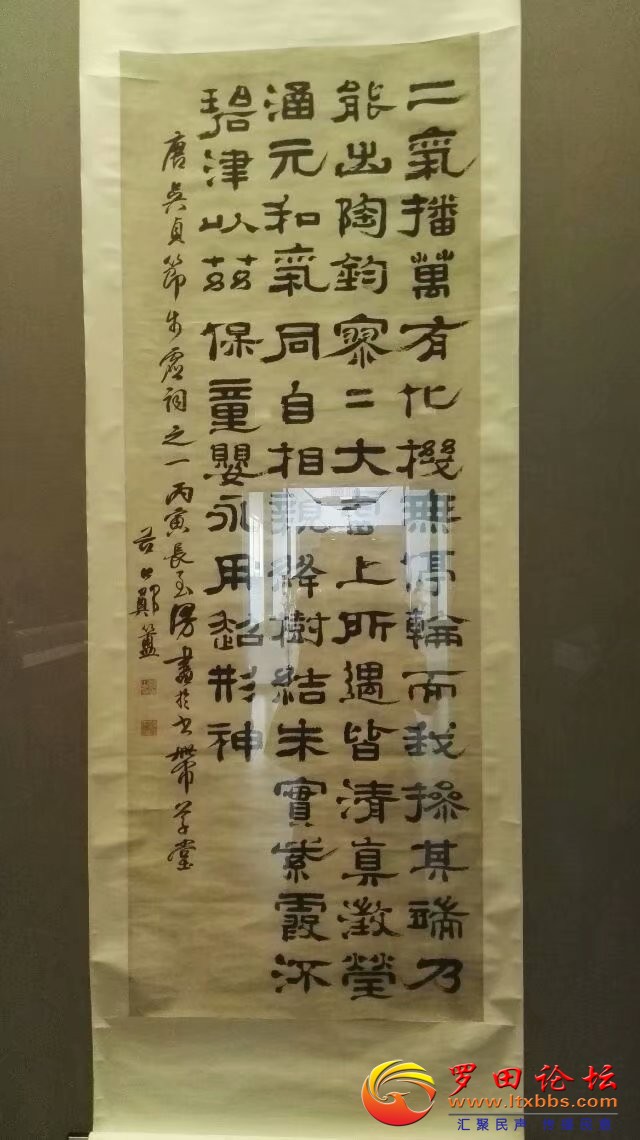 二氣播萬有化機無停輪而我操其端乃
能出陶鈞寥二大上所遇皆清真澂瑩
涵元和氣同自相親絳樹結朱實紫霞流
碧津以茲保童嬰永用超形神
唐吳貞節步虛詞之一丙寅長至漫書於書帶草堂
谷口鄭簠
罗田论坛
www.ltxbbs.com
汇聚民声